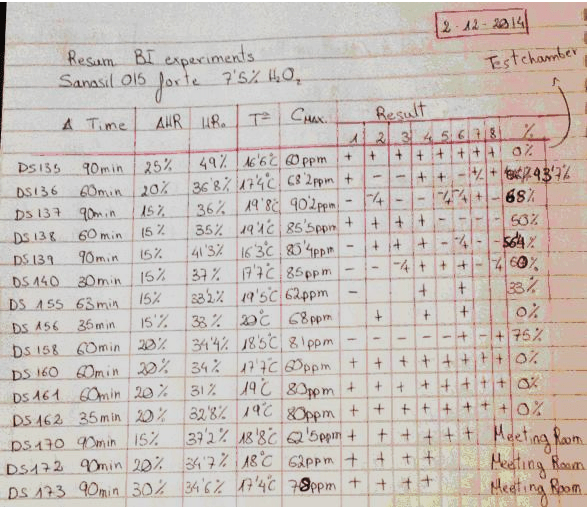 2-12-2014
Resum BI experiments
Testchamber
Sanosil 015 forte 7'5% H₂O₂
Δ Time ΔHR HR₀ Tª CMAX. Result
1 2 3 4 5 6 7 8 %
DS135 90min 25% 49% 16'6°C 60ppm + + + + + + + + 0%
DS136 60min 20% 36'8% 17'4°C 68'2ppm + - - + + - + 43'7%
DS137 90min 15% 36% 19'8°C 90'2ppm - -/4 - - -/4 -/4 + - 68%
DS138 60min 15% 35% 19'1°C 85'5ppm + + + + - - - - 50%
DS139 90min 15% 41'3% 16'3°C 80'4ppm - + + + - -/4 - - %
DS140 30min 15% 37% 17'7°C 85ppm - - -/4 + + + - -/4 60%
DS 155 63min 15% 33'2% 19'5°C 62ppm - + + 33%
DS 156 35min 15'% 33% 20°C 68ppm + + + 0%
DS 158 60min 20% 34'4% 18'5°C 81ppm - - - - - + - + 75%
DS 160 60min 20% 34% 17'7°C 60ppm + + + + + + + + 0%
DS161 60min 20% 31% 19°C 80ppm + + + + + + + + 0%
DS162 35min 20% 32'8% 19°C 80ppm + + + + + + + + 0%
DS170 90min 15% 37'2% 18'8°C 62'5ppm + + + + + + Meeting Room
DS172 90min 20% 34'7% 18°C 62ppm + + + + Meeting Room
DS 173 90min 30% 34'6% 17'4°C ppm + + + + Meeting Room